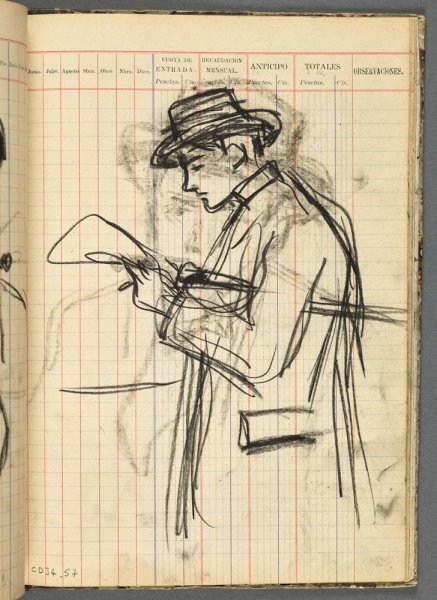 CUOTA DE RECAUDACION
ENTRADA. MENSUAL. ANTICIPO TOTALES
Junio. Julio. Agosto Sbre. Obre. Nbre. Dbre. OBSERVACIONES.
Pesetas. Cts. Cts. Pesetas. Cts. Pesetas. Cts.
CDD4_57